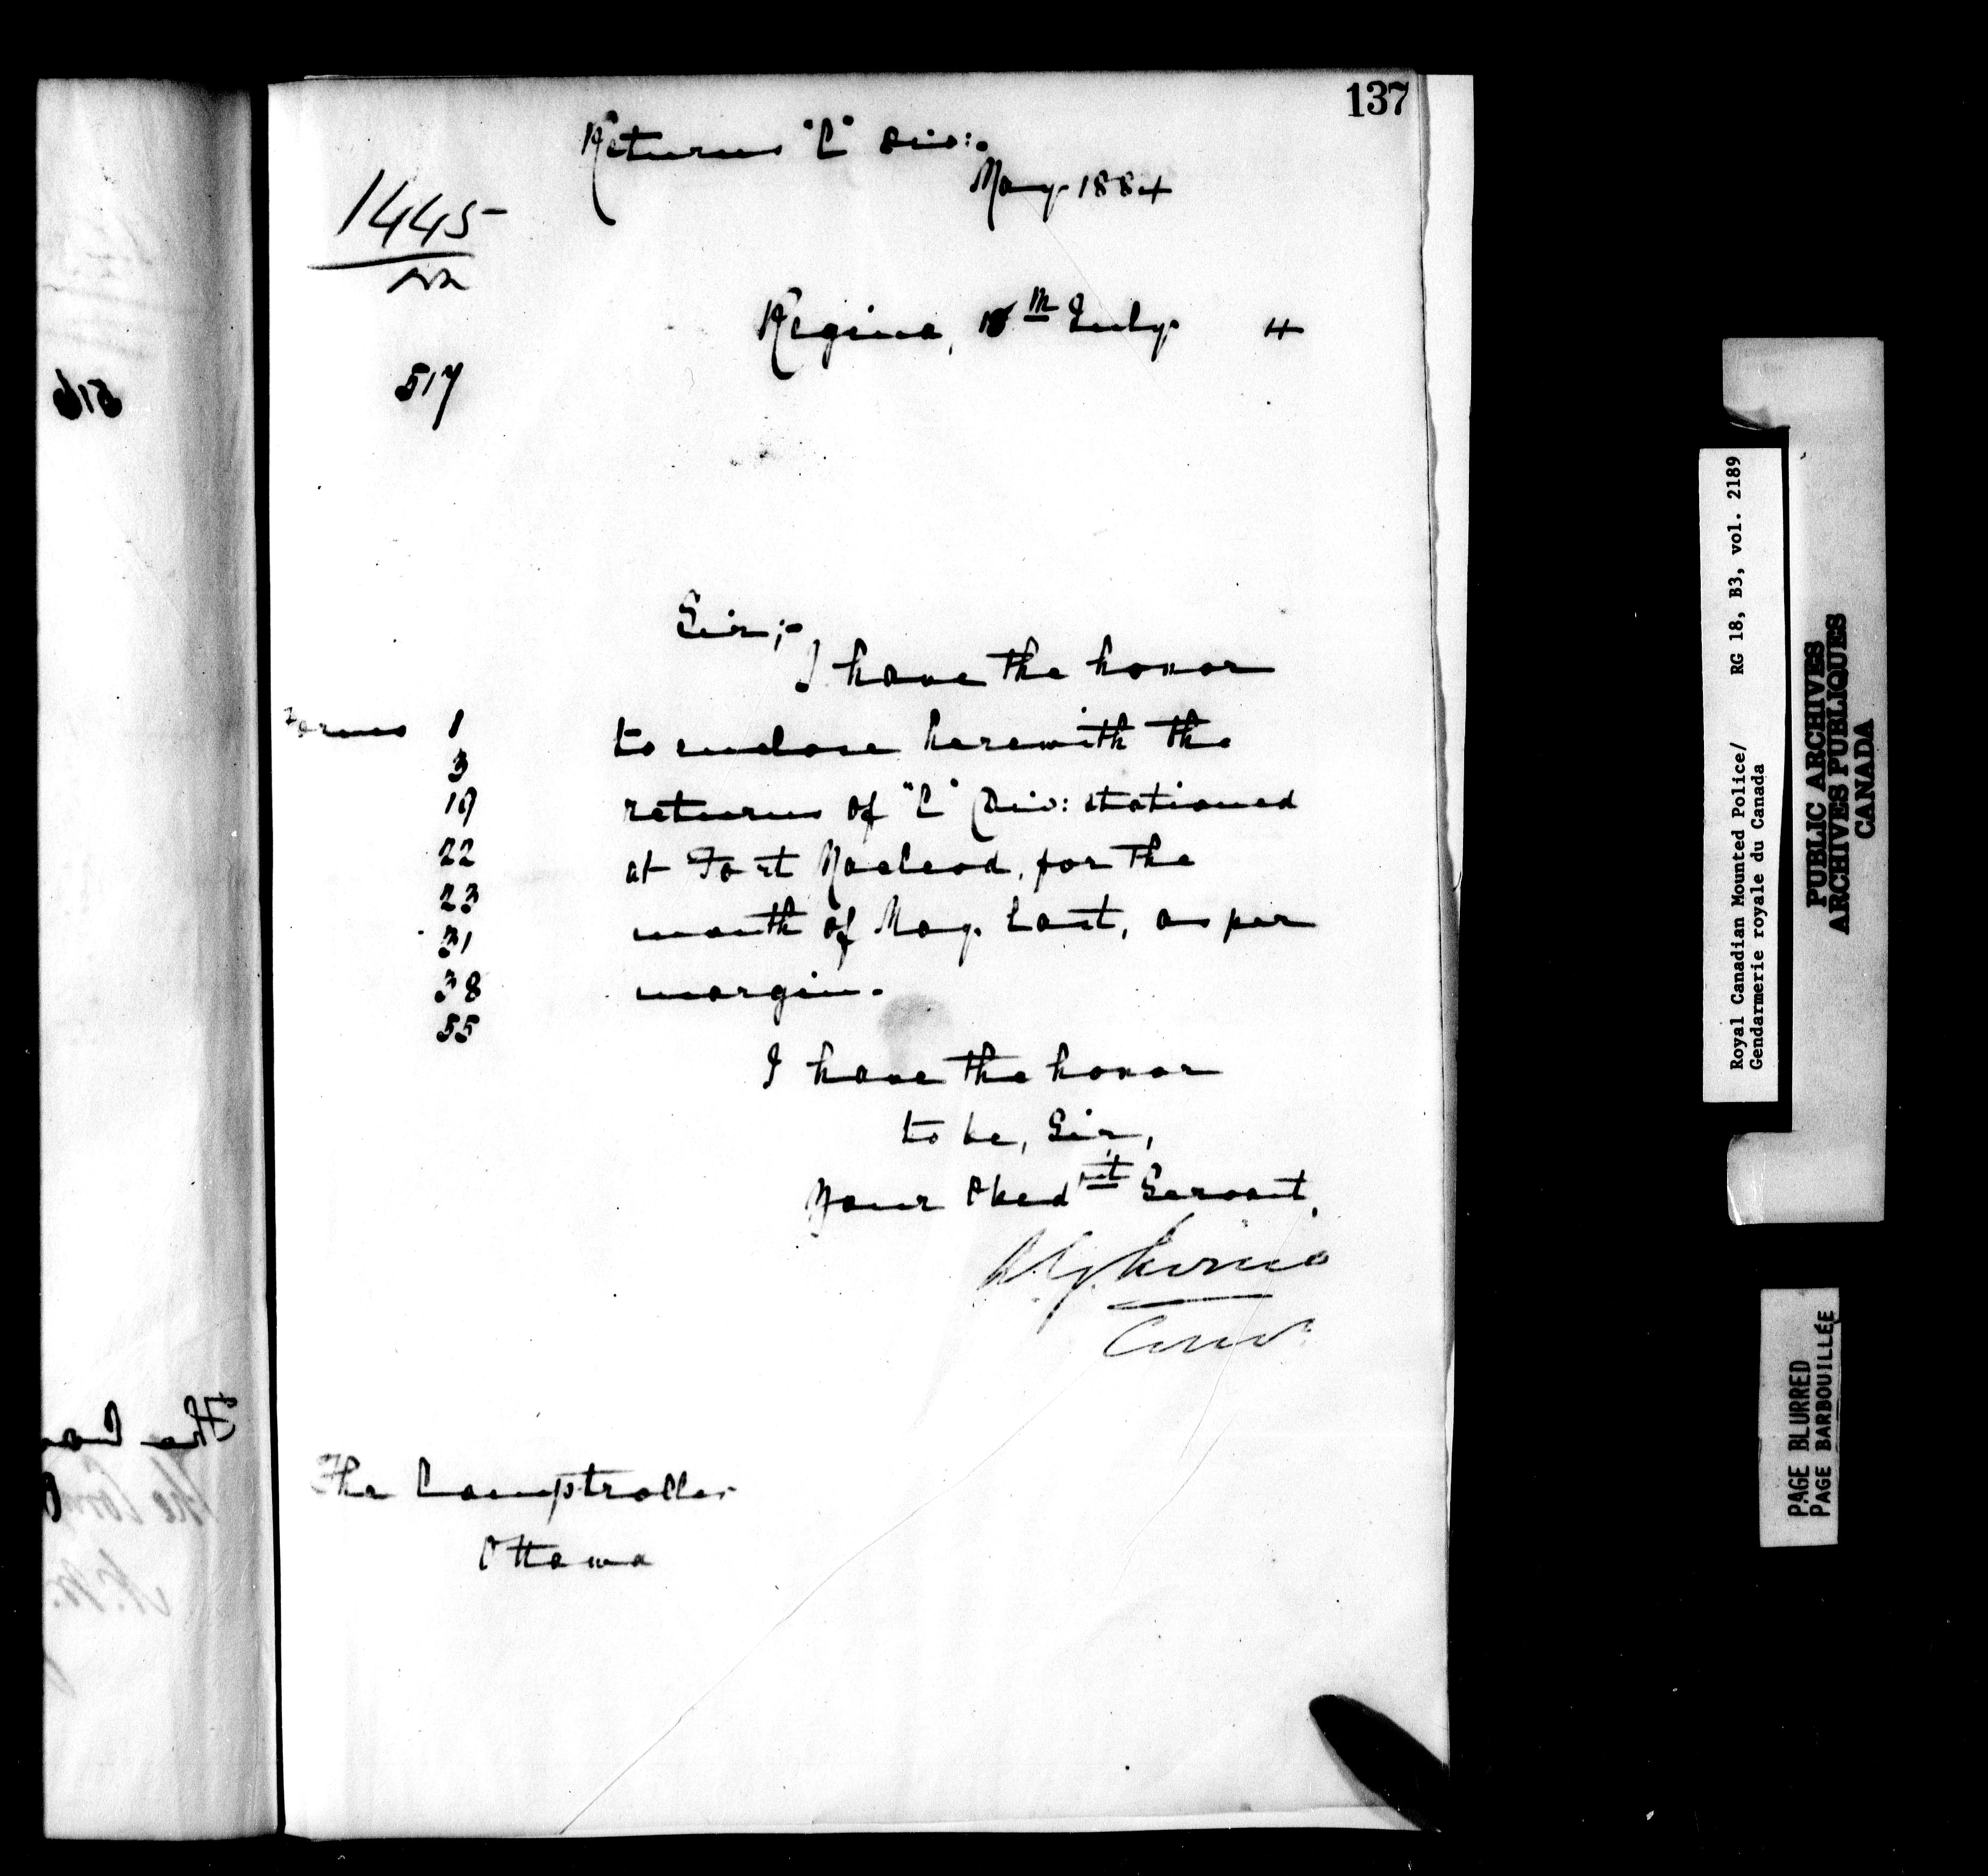 137
Returns "C" Div:.
May 1884
1445
Regina, th July 4
517
Sir;-
I have the honor
Forms 1 to enclose herewith the
3
19 returns of "C" Div: stationed
22 at Fort Macleod, for the
23
31 month of May last, as per
38 margin.
55
I have the honor
to be, Sir,
Your Obed nt Servant.
A.G. Irvine
The Comptroller
Ottawa
516
The Com
Royal Canadian Mounted Police/ RG 18, B3, vol. 2189
Gendarmerie royale du Canada
PUBLIC ARCHIVES
ARCHIVES PUBLIQUES
CANADA
PAGE BLURRED
PAGE BARBOUILLÉE